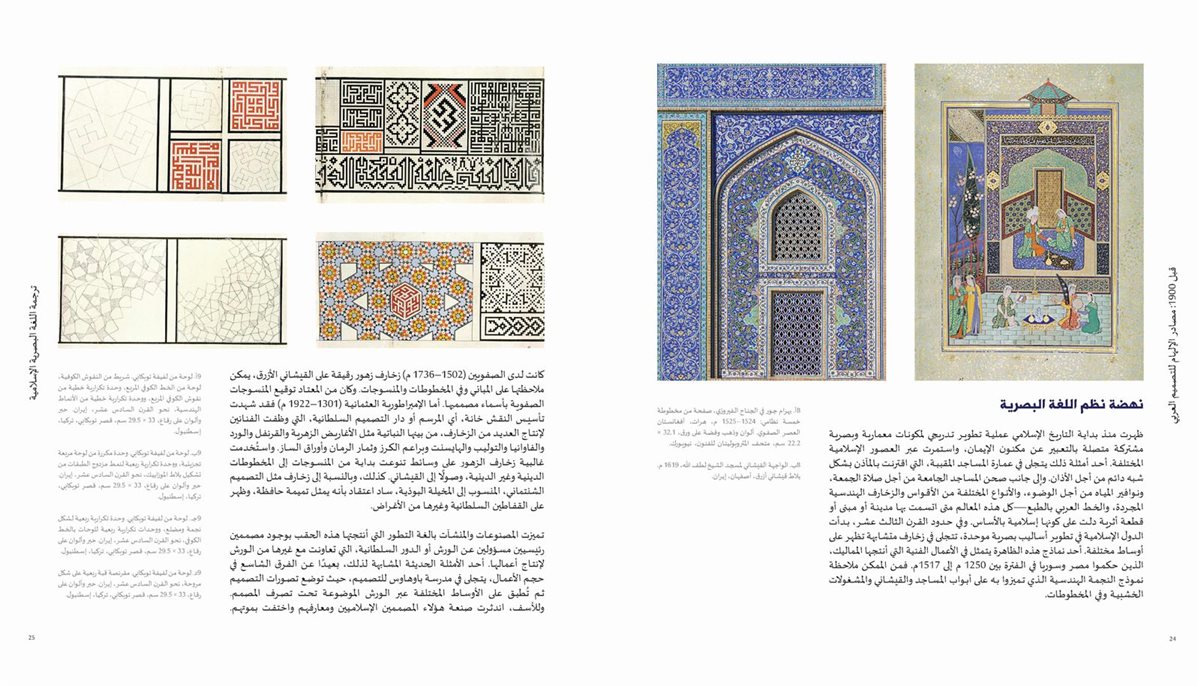 قبل 1900: مصادر الإلهام للتصميم العربي
8أ. بهرام جور في الجناح الفيروزي، صفحة من مخطوطة
خمسة نظامي، 1524–1525 م، هرات، أفغانستان
العصر الصفوي. ألوان وذهب وفضة على ورق، 32.1 ×
22.2 سم، متحف المتروبوليتان للفنون، نيويورك.
8ب. الواجهة القيشاني لمسجد الشيخ لطف الله، 1619 م.
بلاط قيشاني أزرق، أصفهان، إيران.
نهضة نظم اللغة البصرية
ظهرت منذ بداية التاريخ الإسلامي عملية تطوير تدريجي لمكونات معمارية وبصرية
مشتركة متصلة بالتعبير عن مكنون الإيمان، واستمرت عبر العصور الإسلامية
المختلفة. أحد أمثلة ذلك يتجلى في عمارة المساجد المقببة، التي اقترنت بالمآذن بشكل
شبه دائم من أجل الأذان. وإلى جانب صحن المساجد الجامعة من أجل صلاة الجمعة،
ونوافير المياه من أجل الوضوء، والأنواع المختلفة من الأقواس والزخارف الهندسية
المجردة، والخط العربي بالطبع—كل هذه المعالم متى اتسمت بها مدينة أو مبنى أو
قطعة أثرية دلت على كونها إسلامية بالأساس. وفي حدود القرن الثالث عشر، بدأت
الدول الإسلامية في تطوير أساليب بصرية موحدة، تتجلى في زخارف متشابهة تظهر على
أوساط مختلفة. أحد نماذج هذه الظاهرة يتمثل في الأعمال الفنية التي أنتجها المماليك،
الذين حكموا مصر وسوريا في الفترة بين 1250 م إلى 1517م. فمن الممكن ملاحظة
نموذج النجمة الهندسية الذي تميزوا به على أبواب المساجد والقيشاني والمشغولات
الخشبية وفي المخطوطات.
24
كانت لدى الصفويين (1502–1736 م) زخارف زهور رقيقة على القيشاني الأزرق، يمكن
ملاحظتها على المباني وفي المخطوطات والمنسوجات. وكان من المعتاد توقيع المنسوجات
الصفوية بأسماء مصمميها. أما الإمبراطورية العثمانية (1301–1922 م) فقد شهدت
تأسيس النقش خانة، أي المرسم أو دار التصميم السلطانية، التي وظفت الفنانين
لإنتاج العديد من الزخارف، من بينها النباتية مثل الأغاريض الزهرية والقرنفل والورد
والفاوانيا والتوليب والهايسنت وبراعم الكرز وثمار الرمان وأوراق الساز. واستُخدمت
غالبية زخارف الزهور على وسائط تنوعت بداية من المنسوجات إلى المخطوطات
الدينية وغير الدينية، وصولًا إلى القيشاني. كذلك، وبالنسبة إلى زخارف مثل التصميم
الشنتماني، المنسوب إلى المخيلة البوذية، ساد اعتقاد بأنه يمثل تميمة حافظة، وظهر
على القفاطين السلطانية وغيرها من الأغراض.
تميزت المصنوعات والمنشآت بالغة التطور التي أنتجتها هذه الحقب بوجود مصممين
رئيسيين مسؤولين عن الورش أو الدور السلطانية، التي تعاونت مع غيرها من الورش
لإنتاج أعمالها. أحد الأمثلة الحديثة المشابهة لذلك، بعيدًا عن الفرق الشاسع في
حجم الأعمال، يتجلى في مدرسة باوهاوس للتصميم، حيث توضع تصورات التصميم
ثم تُطبق على الأوساط المختلفة عبر الورش الموضوعة تحت تصرف المصمم.
وللأسف، اندثرت صنعة هؤلاء المصممين الإسلاميين ومعارفهم واختفت بموتهم.
9أ. لوحة من لفيفة توبكابي. شريط من النقوش الكوفية،
لوحة من الخط الكوفي المربع، وحدة تكرارية خطية من
نقوش كوفي المربع، ووحدة تكرارية خطية من الأنماط
الهندسية. نحو القرن السادس عشر، إيران. حبر
وألوان على رقاع، 33 × 29.5 سم، قصر توبكابي، تركيا،
إسطنبول.
9ب. لوحة من لفيفة توبكابي. وحدة مكررة من لوحة مربعة
تجزيئية، ووحدة تكرارية ربعية لنمط مزدوج الطبقات من
تشكيل بلاط الموزاييك، نحو القرن السادس عشر، إيران.
حبر وألوان على رقاع، 33 × 29.5 سم، قصر توبكابي،
تركيا، إسطنبول.
9جـ. لوحة من لفيفة توبكابي. وحدة تكرارية ربعية لشكل
نجمة ومضلع، ووحدات تكرارية ربعية للوحات بالخط
الكوفي، نحو القرن السادس عشر، إيران. حبر وألوان على
رقاع، 33 × 29.5 سم، قصر توبكابي، تركيا، إسطنبول.
9د. لوحة من لفيفة توبكابي. مقرنصة قبة ربعية على شكل
مروحة، نحو القرن السادس عشر، إيران. حبر وألوان على
رقاع، 33 × 29.5 سم، قصر توبكابي، تركيا، إسطنبول.
ترجمة اللغة البصرية الإسلامية
25